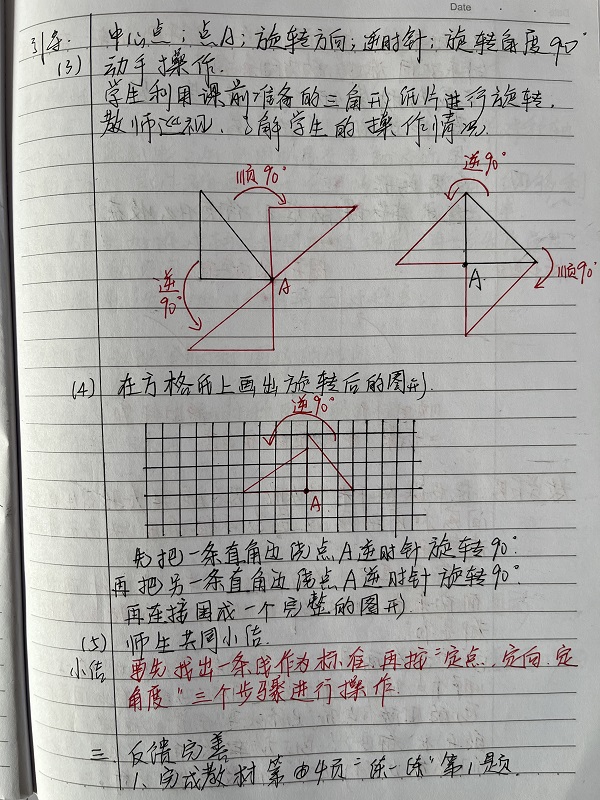 Date
引导: 中心点:点A;旋转方向:逆时针;旋转角度90°
(3) 动手操作.
学生利用课前准备的三角形纸片进行旋转.
教师巡视,了解学生的操作情况.
顺90° 逆90°
逆90° A A 顺90°
(4) 在方格纸上画出旋转后的图形.
逆90°
A
先把一条直角边绕点A逆时针旋转90°.
再把另一条直角边绕点A逆时针旋转90°.
再连接围成一个完整的图形.
(5) 师生共同小结.
小结 要先找出一条线作为标准.再按“定点、定向、定
角度”三个步骤进行操作.
三. 反馈完善
1.完成教材第4页“练一练”第1题.